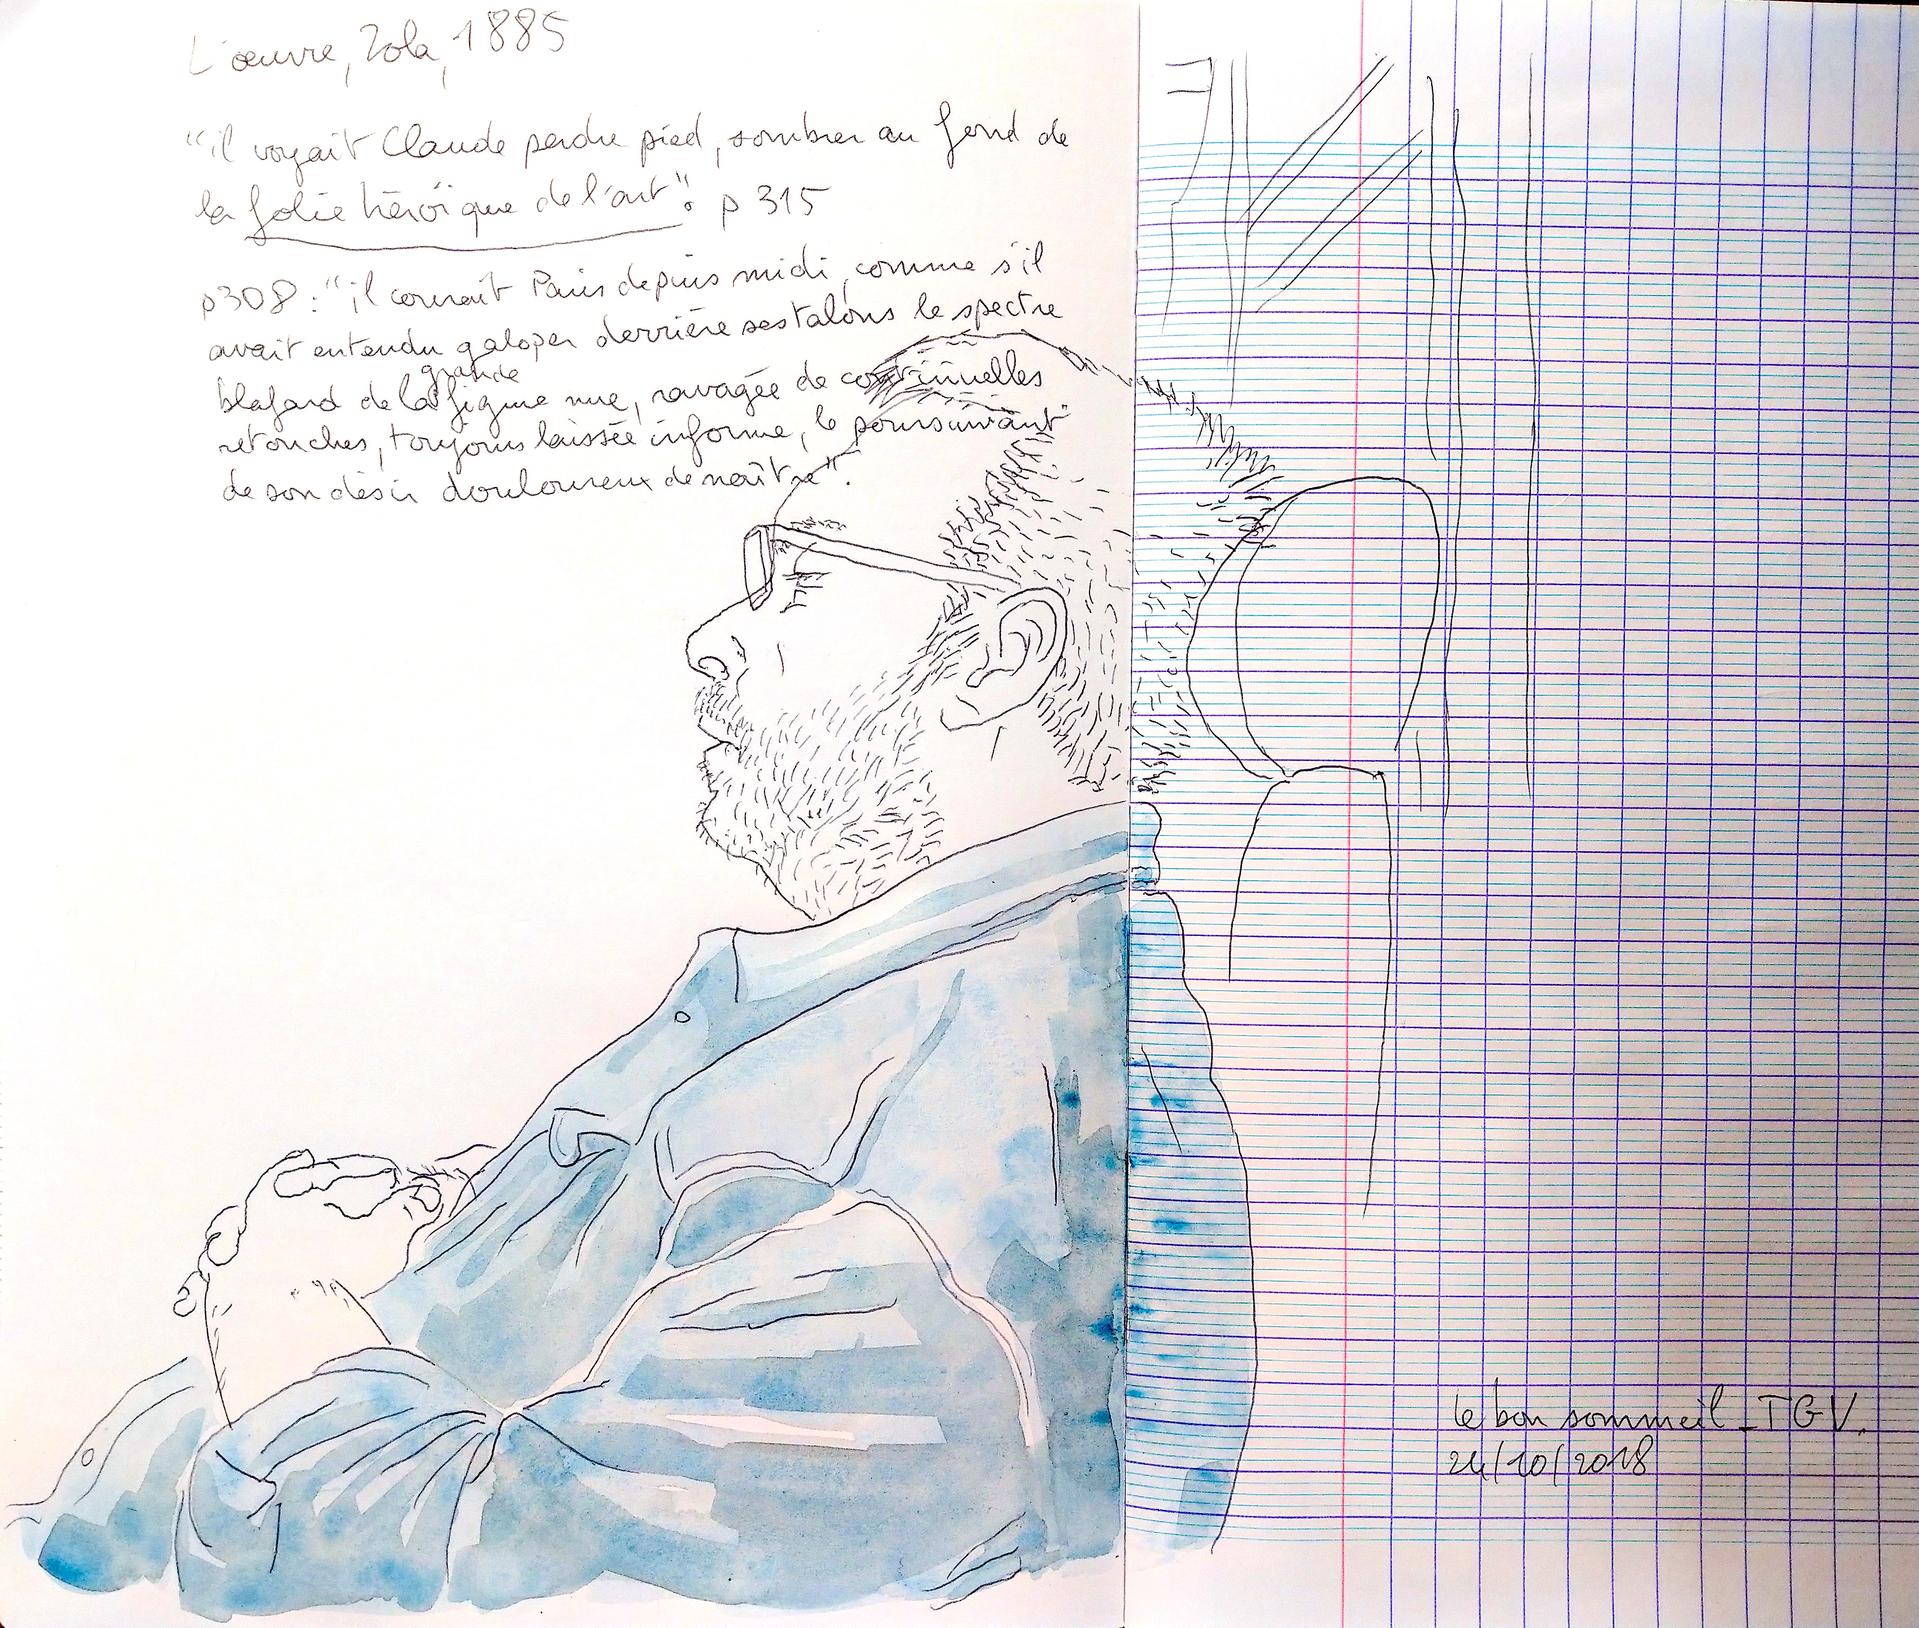 L'œuvre, Zola, 1885
"il voyait Claude perdre pied, sombrer au fond de
la folie héroïque de l'art". p 315
p308 : "il courait Paris depuis midi, comme s'il
avait entendu galoper derrière ses talons le spectre
blafard de la grande figure nue, ravagée de continuelles
retouches, toujours laissée informe, le poursuivant
de son désir douloureux de naître".
le bon sommeil _ TGV.
24/10/2018